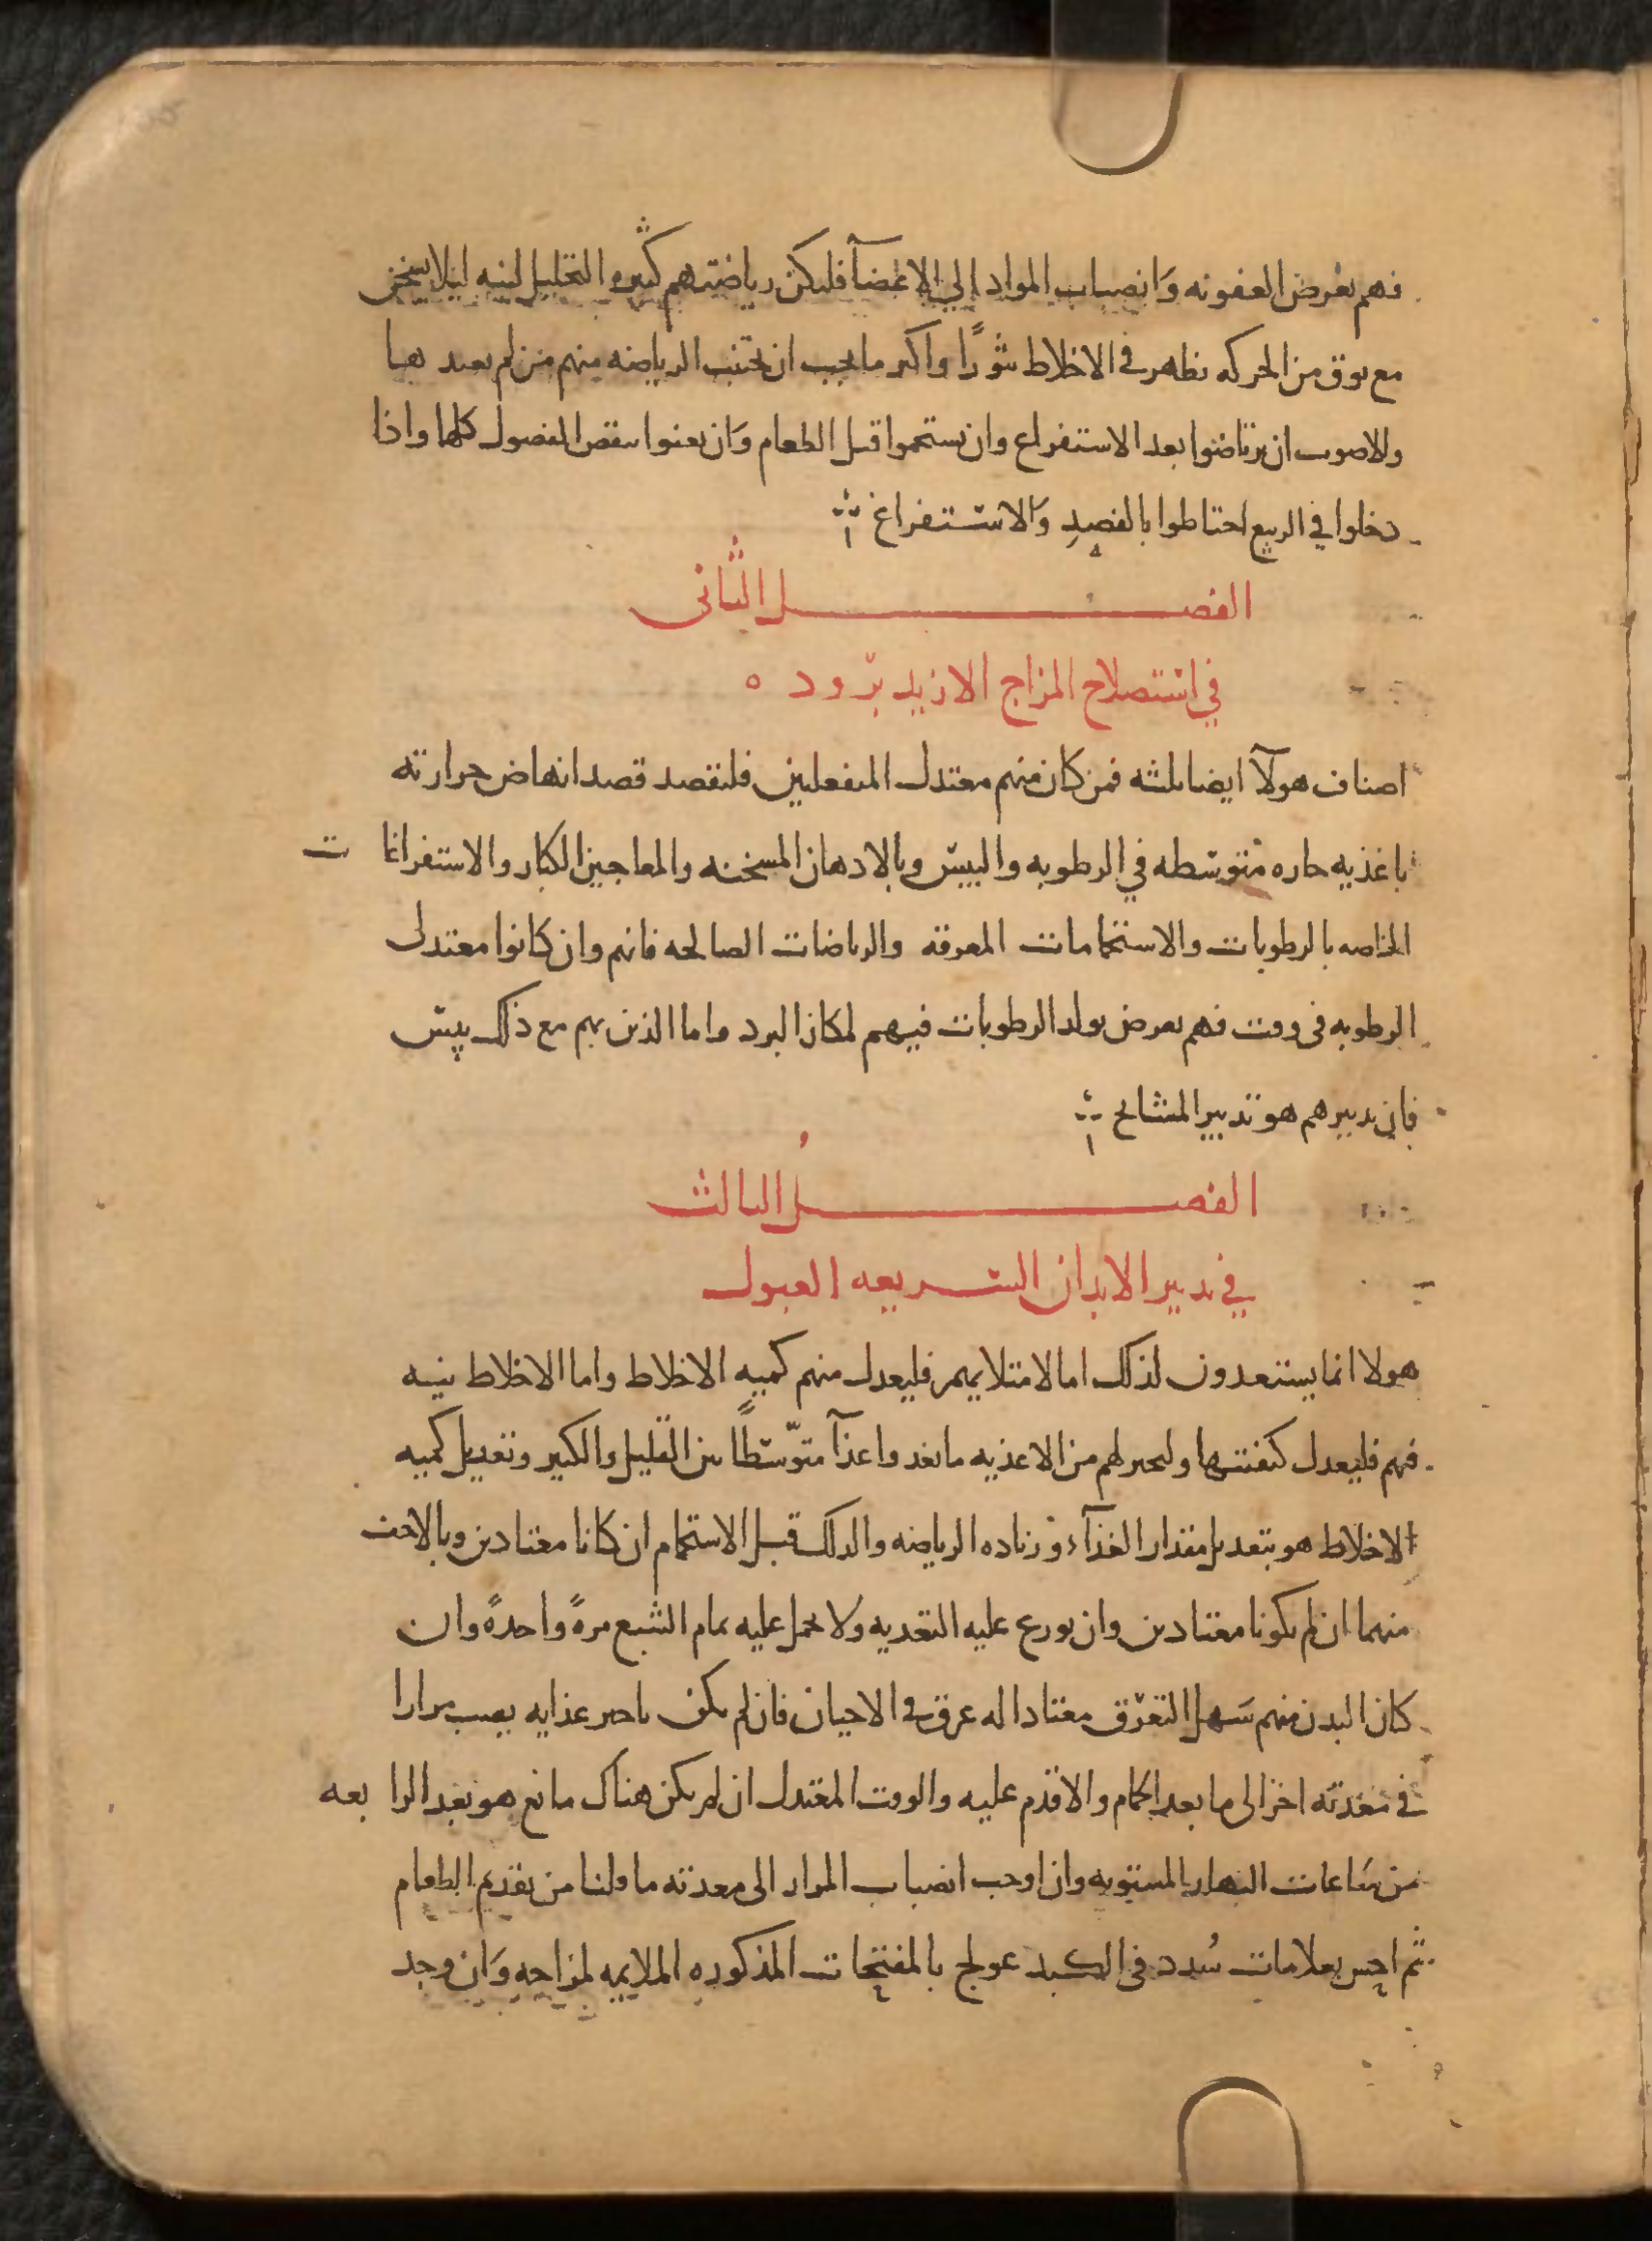 فهم بعرض العفونه وانصباب المواد الي الاعضآ فليكن رياضتهم كثيره التحليل لينه ليلا يسخن
مع توق من الحركه تظهر في الاخلاط ثورًا واكثر ما يجب ان يجتنب الرياضه منهم من لم يعتد بها
والاصوب ان يرتاضوا بعد الاستفراغ وان يستحموا قبل الطعام وان يعنوا بنفض الفضول كلها واذا
دخلوا في الربيع احتاطوا بالفصد والاستفراغ
الفصل الثاني
في استصلاح المزاج الازيد برودة
اصناف هولآ ايضا ثلثه فمن كان منهم معتدل المنفعلين فليقصد قصد انهاض حرارته
باغذيه حاره متوسطه في الرطوبه واليبس وبالادهان المسخنه والمعاجين الكبار والاستفراغات
الخاصه بالرطوبات والاستحمامات المعرقه والرياضات الصالحه فانهم وان كانوا معتدلى
الرطوبه فى وقت فهم بعرض تولد الرطوبات فيهم لمكان البرد واما الذين بهم مع ذلك يبس
فان تدبيرهم هو تدبير المشايخ
الفصل الثالث
في تدبير الابدان السريعه القبول
هولا انما يستعدون لذلك اما لامتلايهم فليعدل منهم كميه الاخلاط واما الاخلاط نيه
فيهم فليعدل كيفيتها وليختر لهم من الاغذيه ما يغدوا غذآ متوسطًا بين القليل والكثير وتعديل كميه
الاخلاط هو بتعديل مقدار الغذآء وزياده الرياضه والدلك قبل الاستحمام ان كانا معتادين وبالاخف
منهما ان لم يكونا معتادين وان يوزع عليه التغديه ولا يحمل عليه تمام الشبع مرةً واحدةً وان
كان البدن منهم سهل التعرق معتادا له عرق في الاحيان فان لم يكن تاخير غذايه يصب مرارا
في معدته اخر الى ما بعد الحمام والا قدم عليه والوقت المعتدل ان لم يكن هناك مانع هو بعد الرابعه
من ساعات النهار المستويه وان اوجب انصباب المرار الى معدته ما قلنا من تقديم الطعام
ثم احس بعلامات سُدد فى الكبد عولج بالمفتحات المذكوره الملايمه لمزاجه وان وجد